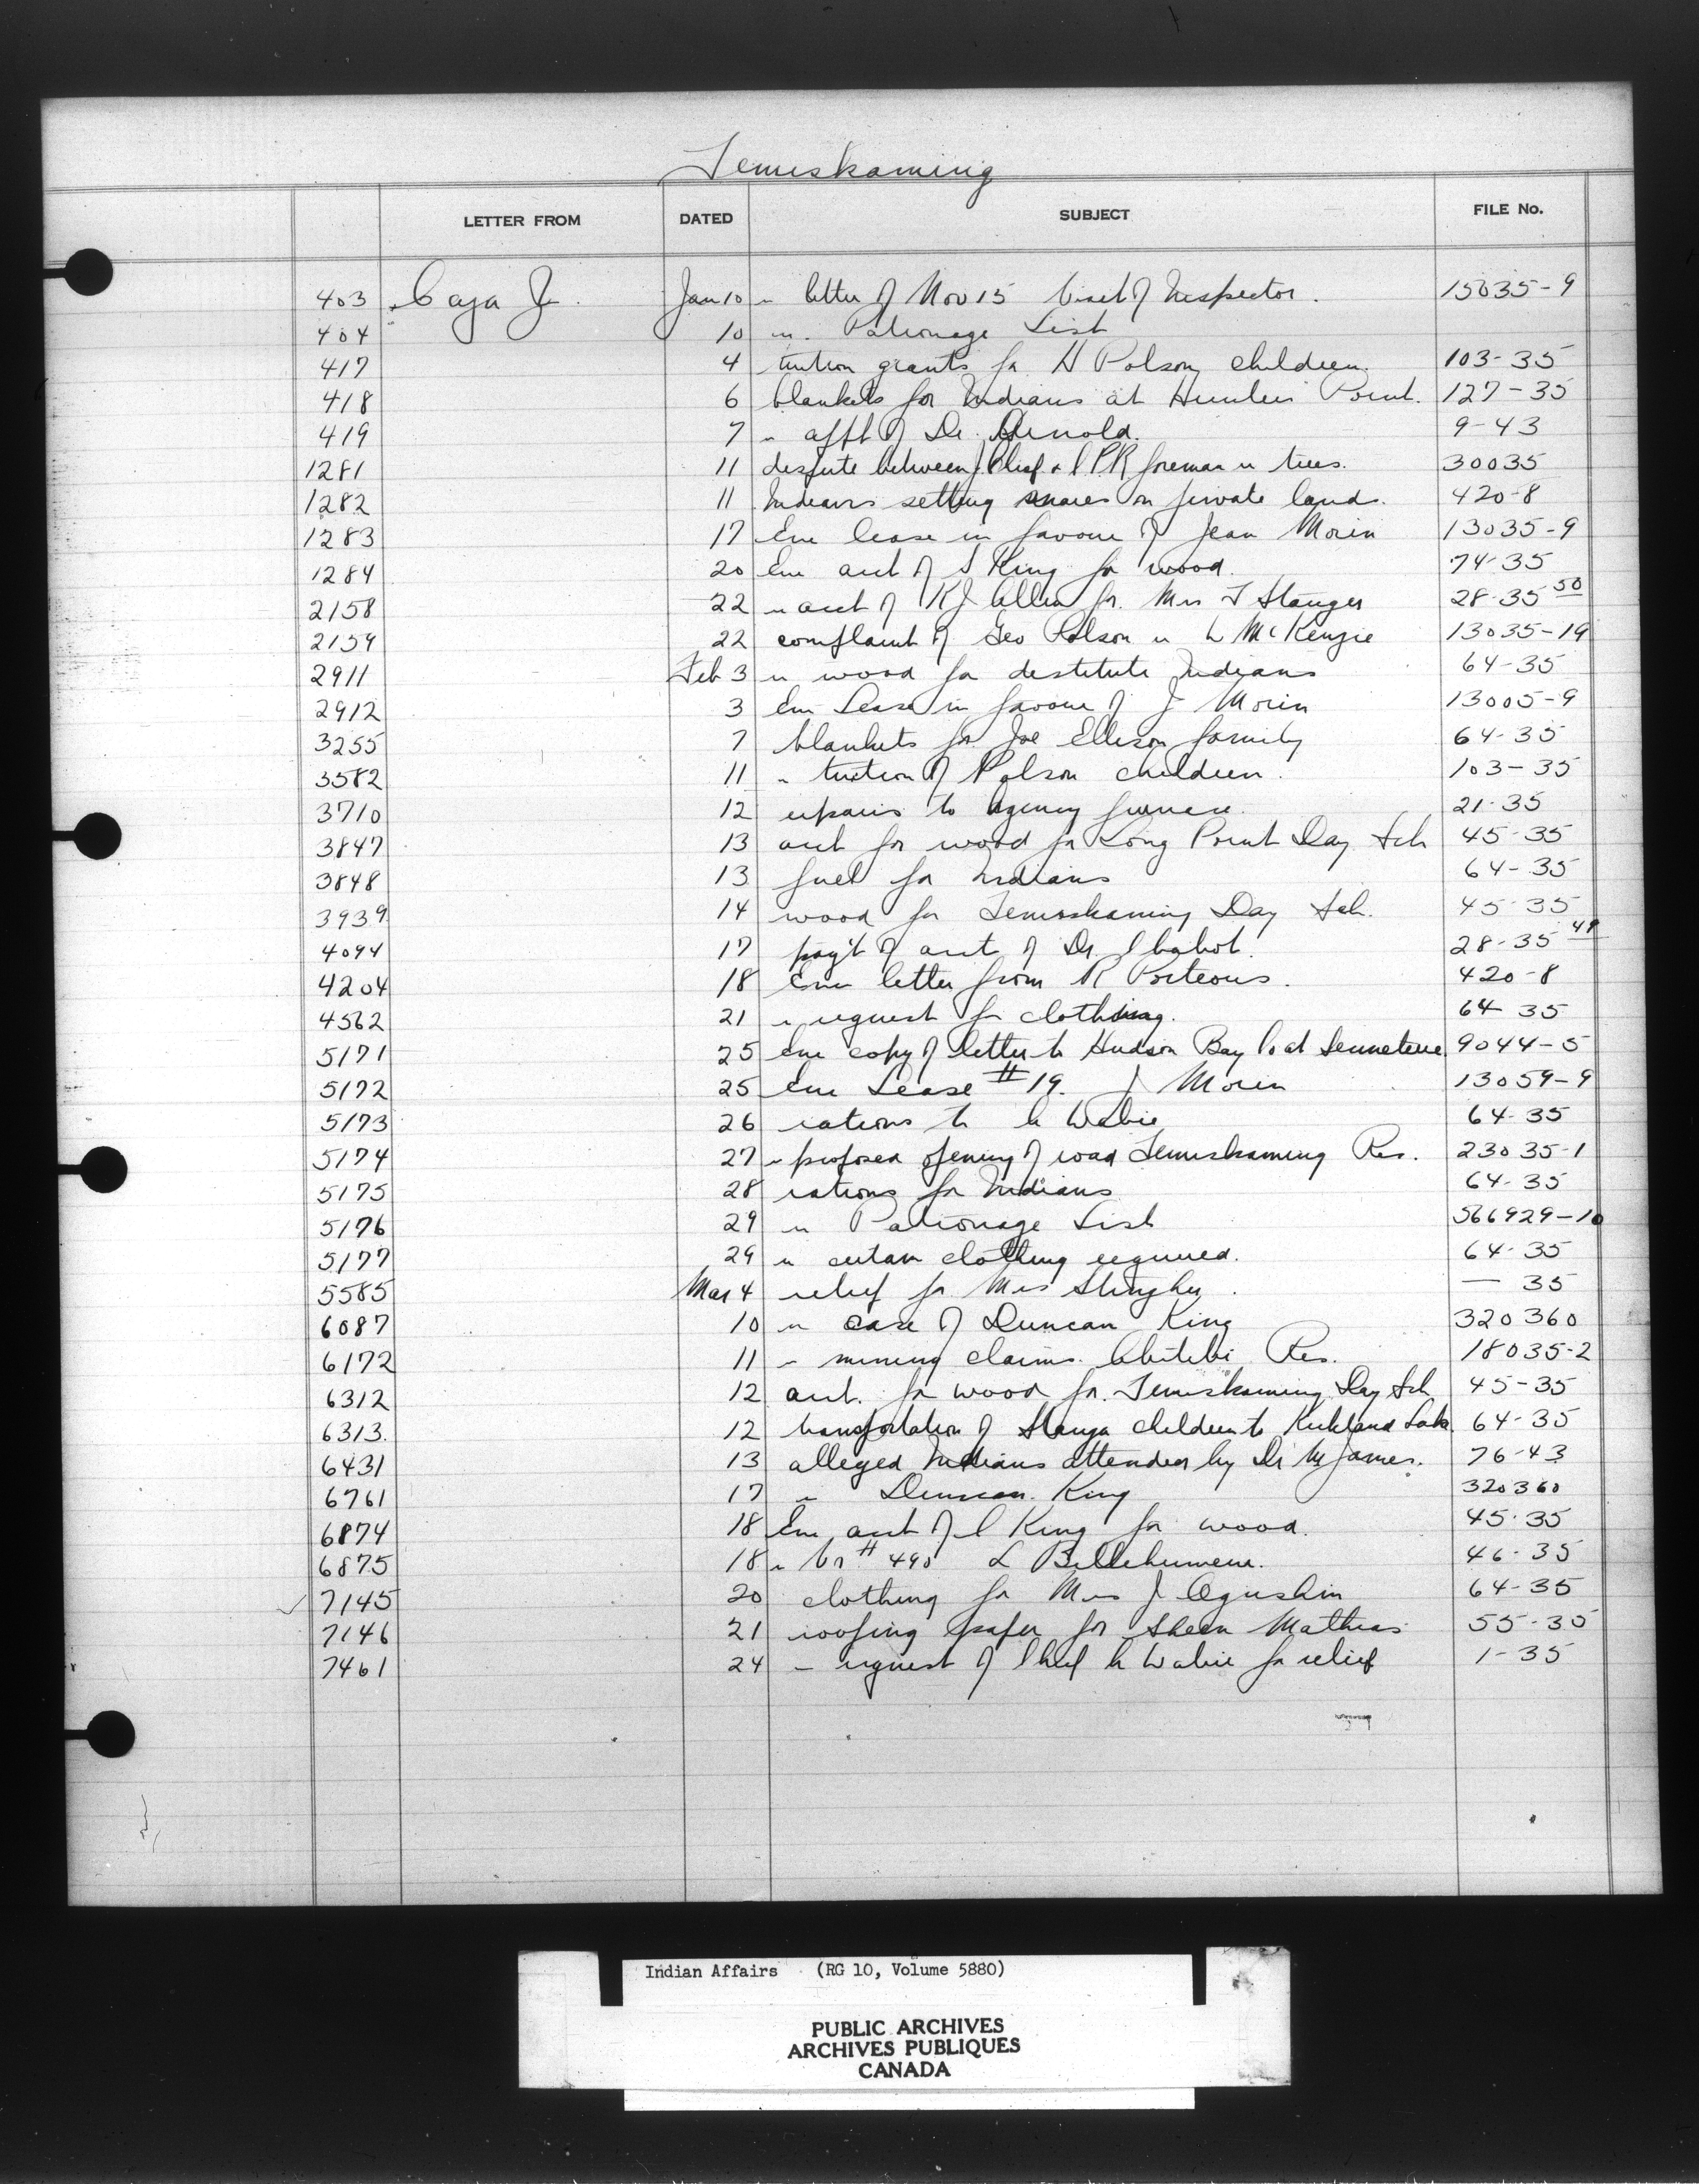 Temiskaming
LETTER FROM DATED SUBJECT FILE No.
403 Caza J. Jan 10 " letter of Nov 15 Visit of Inspector. 15035-9
404 10 " Patronage List
417 4 tuition grants for H Polson children. 103-35
418 6 blankets for Indians at Hunters Point. 127-35
419 7 " appt of Dr. Arnold. 9-43
1281 11 dispute between Chief & CPR foreman " trees. 30035
1282 11 Indians setting snares on private land. 420-8
1283 17 Enc lease in favour of Jean Morin 13035-9
1284 20 Enc acct of S King for wood. 74-35
2158 22 " acct of KJ Allen for Mrs T Stanger 28-35 50
2159 22 complaint of Geo Polson " W McKenzie 13035-19
2911 Feb 3 " wood for destitute Indians 64-35
2912 3 Enc Lease in favour of J Morin 13005-9
3255 7 blankets for Joe Ellison family 64-35
3582 11 " tuition of Polson children. 103-35
3710 12 repairs to Agency furnace. 21-35
3847 13 acct for wood for Long Point Day Sch 45-35
3848 13 fuel for Indians 64-35
3939 14 wood for Temiskaming Day Sch. 45-35
4094 17 pay't of acct of Dr Chabot. 28-35 49
4204 18 Enc letter from R Porteous. 420-8
4562 21 " request for clothing. 64-35
5171 25 enc copy of letter to Hudson Bay Co at Senneterre 9044-5
5172 25 Enc Lease #19. J Morin 13059-9
5173 26 rations to Wabie 64-35
5174 27 " proposed opening of road Temiskaming Res. 23035-1
5175 28 rations for Indians 64-35
5176 29 " Patronage List 566929-10
5177 29 " certain clothing required. 64-35
5585 Mar 4 relief for Mrs — 35
6087 10 " case of Duncan King 320360
6172 11 " mining claims Abitibi Res. 18035-2
6312 12 acct. for wood for Temiskaming Day Sch 45-35
6313. 12 transportation of Stanger children to Kirkland Lake. 64-35
6431 13 alleged Indians attended by Dr McJames. 76-43
6761 17 " Duncan King 320360
6874 18 Enc acct of C King for wood. 45-35
6875 18 " Vr # 490 L Bellehumeur. 46-35
7145 20 clothing for Mrs J Ogushin 64-35
7146 21 roofing paper for Sheen Mathias 55-35
7461 24 " request of Chief Wabie for relief 1-35
Indian Affairs (RG 10, Volume 5880)
PUBLIC ARCHIVES
ARCHIVES PUBLIQUES
CANADA